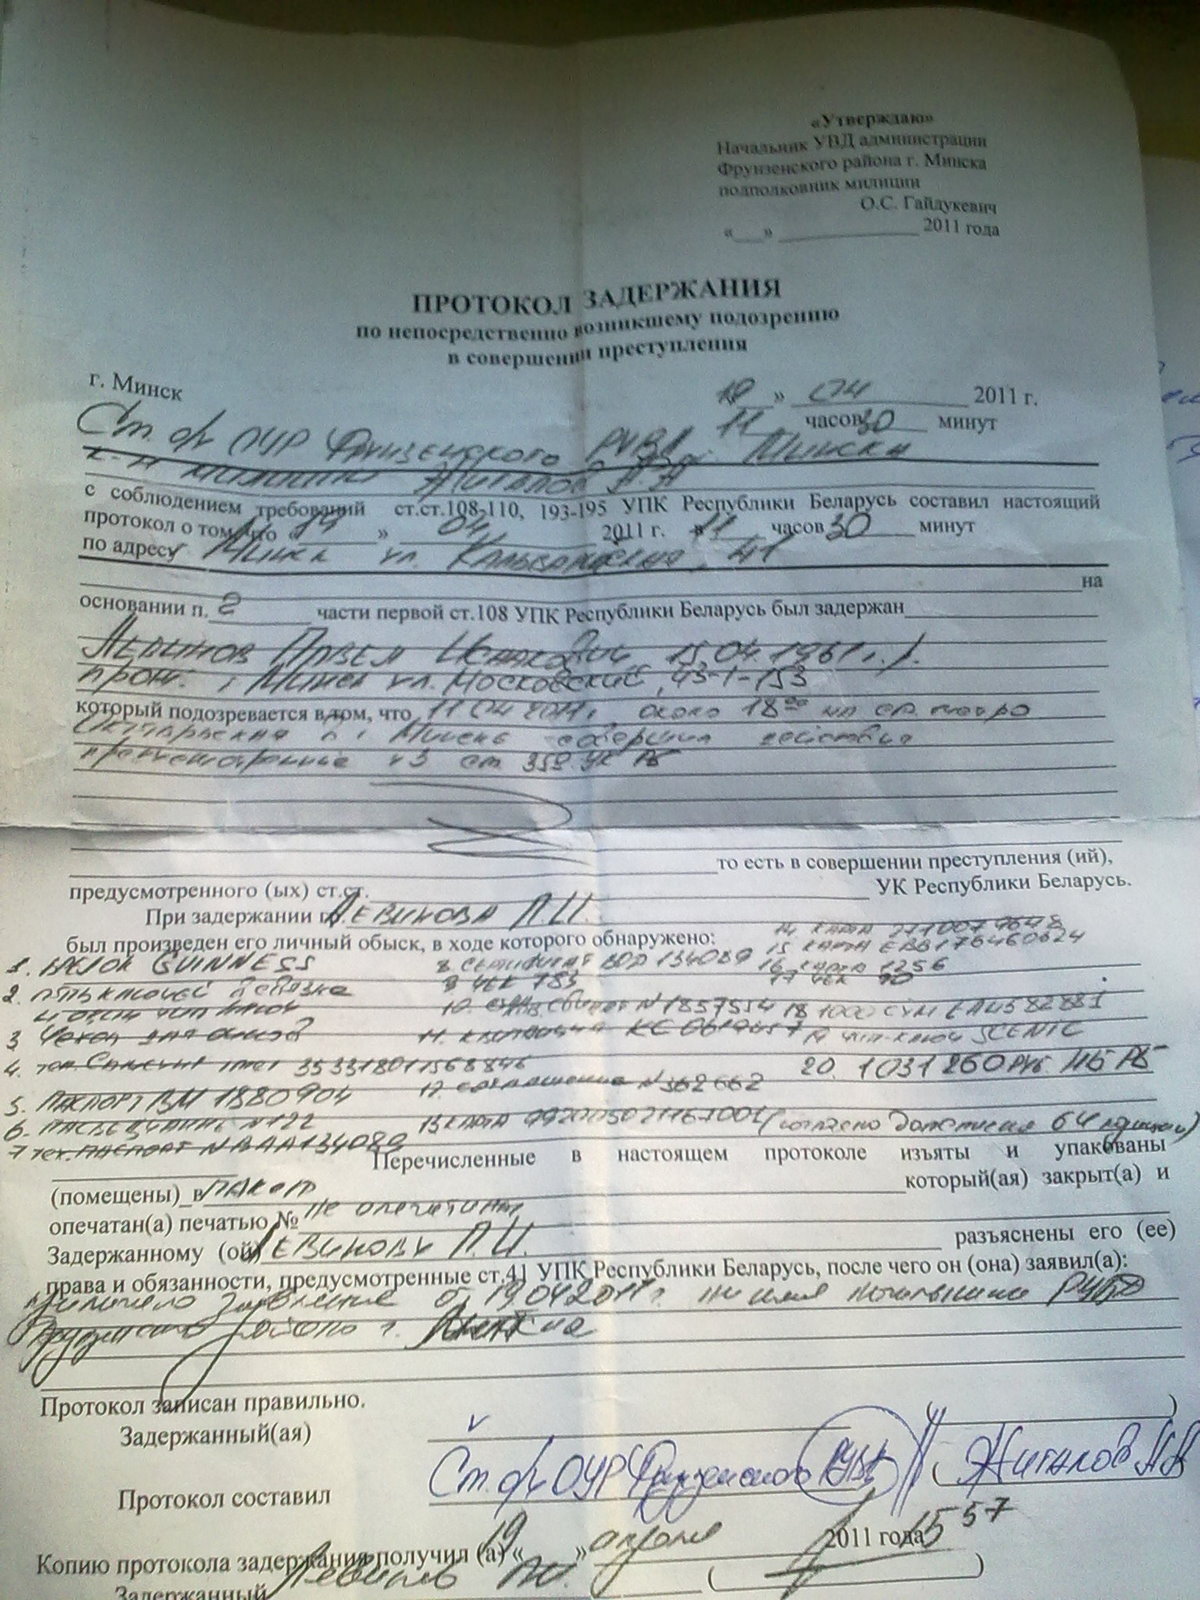 «Утверждаю»
Начальник УВД администрации
Фрунзенского района г. Минска
подполковник милиции
О.С. Гайдукевич
«___» ______________ 2011 года
ПРОТОКОЛ ЗАДЕРЖАНИЯ
по непосредственно возникшему подозрению
в совершении преступления
г. Минск
19 » 04 2011 г.
11 часов 30 минут
Ст. о/у ОУР Фрунзенского РУВД г. Минска
к-н милиции Житалов А.А
с соблюдением требований ст.ст.108-110, 193-195 УПК Республики Беларусь составил настоящий
протокол о том, что « 19 » 04 2011 г. в 11 часов 30 минут
по адресу г. Минск ул. Кальварийская, 41
на
основании п. 2 части первой ст.108 УПК Республики Беларусь был задержан
Левинов Павел Исаакович 15.04.1961 г.р.
прож. г. Минск ул. Московский, 43-1-153
который подозревается в том, что 11 04 2011 г. около 18 на ст. метро
Октябрьская в г. Минске совершил действия
ч3 ст 359 УК РБ
то есть в совершении преступления (ий),
предусмотренного (ых) ст.ст. УК Республики Беларусь.
При задержании г. Левинова П.И.
был произведен его личный обыск, в ходе которого обнаружено:
14 карта
15 карта
1. Брелок GUINNESS 8 сертификат ВОР 134089 16 карта 1256
2. пять ключей связка 9 чек 783 17 чек
10. N 1857554 18 1000
3 11. квитанция 19 чип-ключ SCENIC
4. тел. 353318011568846 12. соглашение N 362662 20. 1031 260 руб. НБ РБ
5. Паспорт ВМ 1880904
6. N122 13 карта (согласно 64 )
7 тех. паспорт N ВАА134089
Перечисленные в настоящем протоколе изъяты и упакованы
(помещены) в пакет который(ая) закрыт(а) и
опечатан(а) печатью № не опечатан
Задержанному (ой) Левинову П.И. разъяснены его (ее)
права и обязанности, предусмотренные ст.41 УПК Республики Беларусь, после чего он (она) заявил(а):
заявление от 19 04 2011 г. на имя начальника РУВД
района г.
Протокол записан правильно.
Задержанный(ая)
Протокол составил Ст. о/у ОУР Фрунзенского РУВД ( Житалов А.А
Копию протокола задержания получил (а) « 19 » апреля 2011 года 15 57
Задержанный Левинов ( )